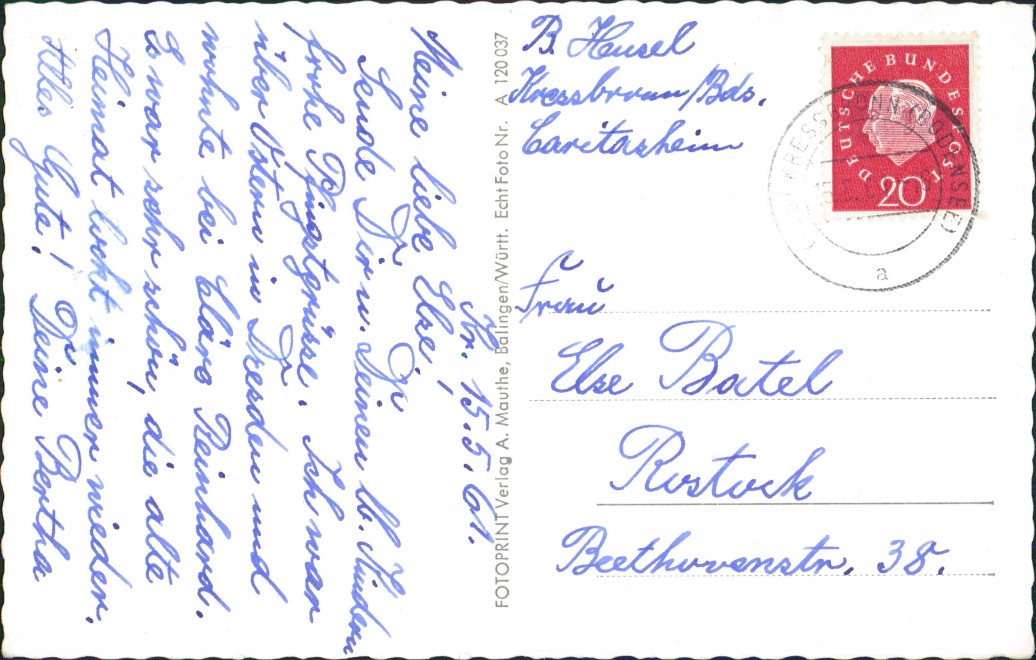 Kr. 15.5.61.
Meine liebe Else,
Sende Dir u. Deinen lb. Kindern
frohe Pfingstgrüsse. Ich war
über Ostern in Dresden und
wohnte bei Kläre Reinhard.
Es war sehr schön, die alte
Heimat lockt immer wieder.
Alles Gute! Deine Bertha
FOTOPRINT Verlag A. Mauthe, Balingen/Württ. Echt Foto Nr. A 120 037
B. Hensel
Kressbronn/Bds.
Caritasheim
DEUTSCHE BUNDESPOST
20
KRESSBRONN (BODENSEE)
a
Frau
Else Batel
Rostock
Beethovenstr. 38.